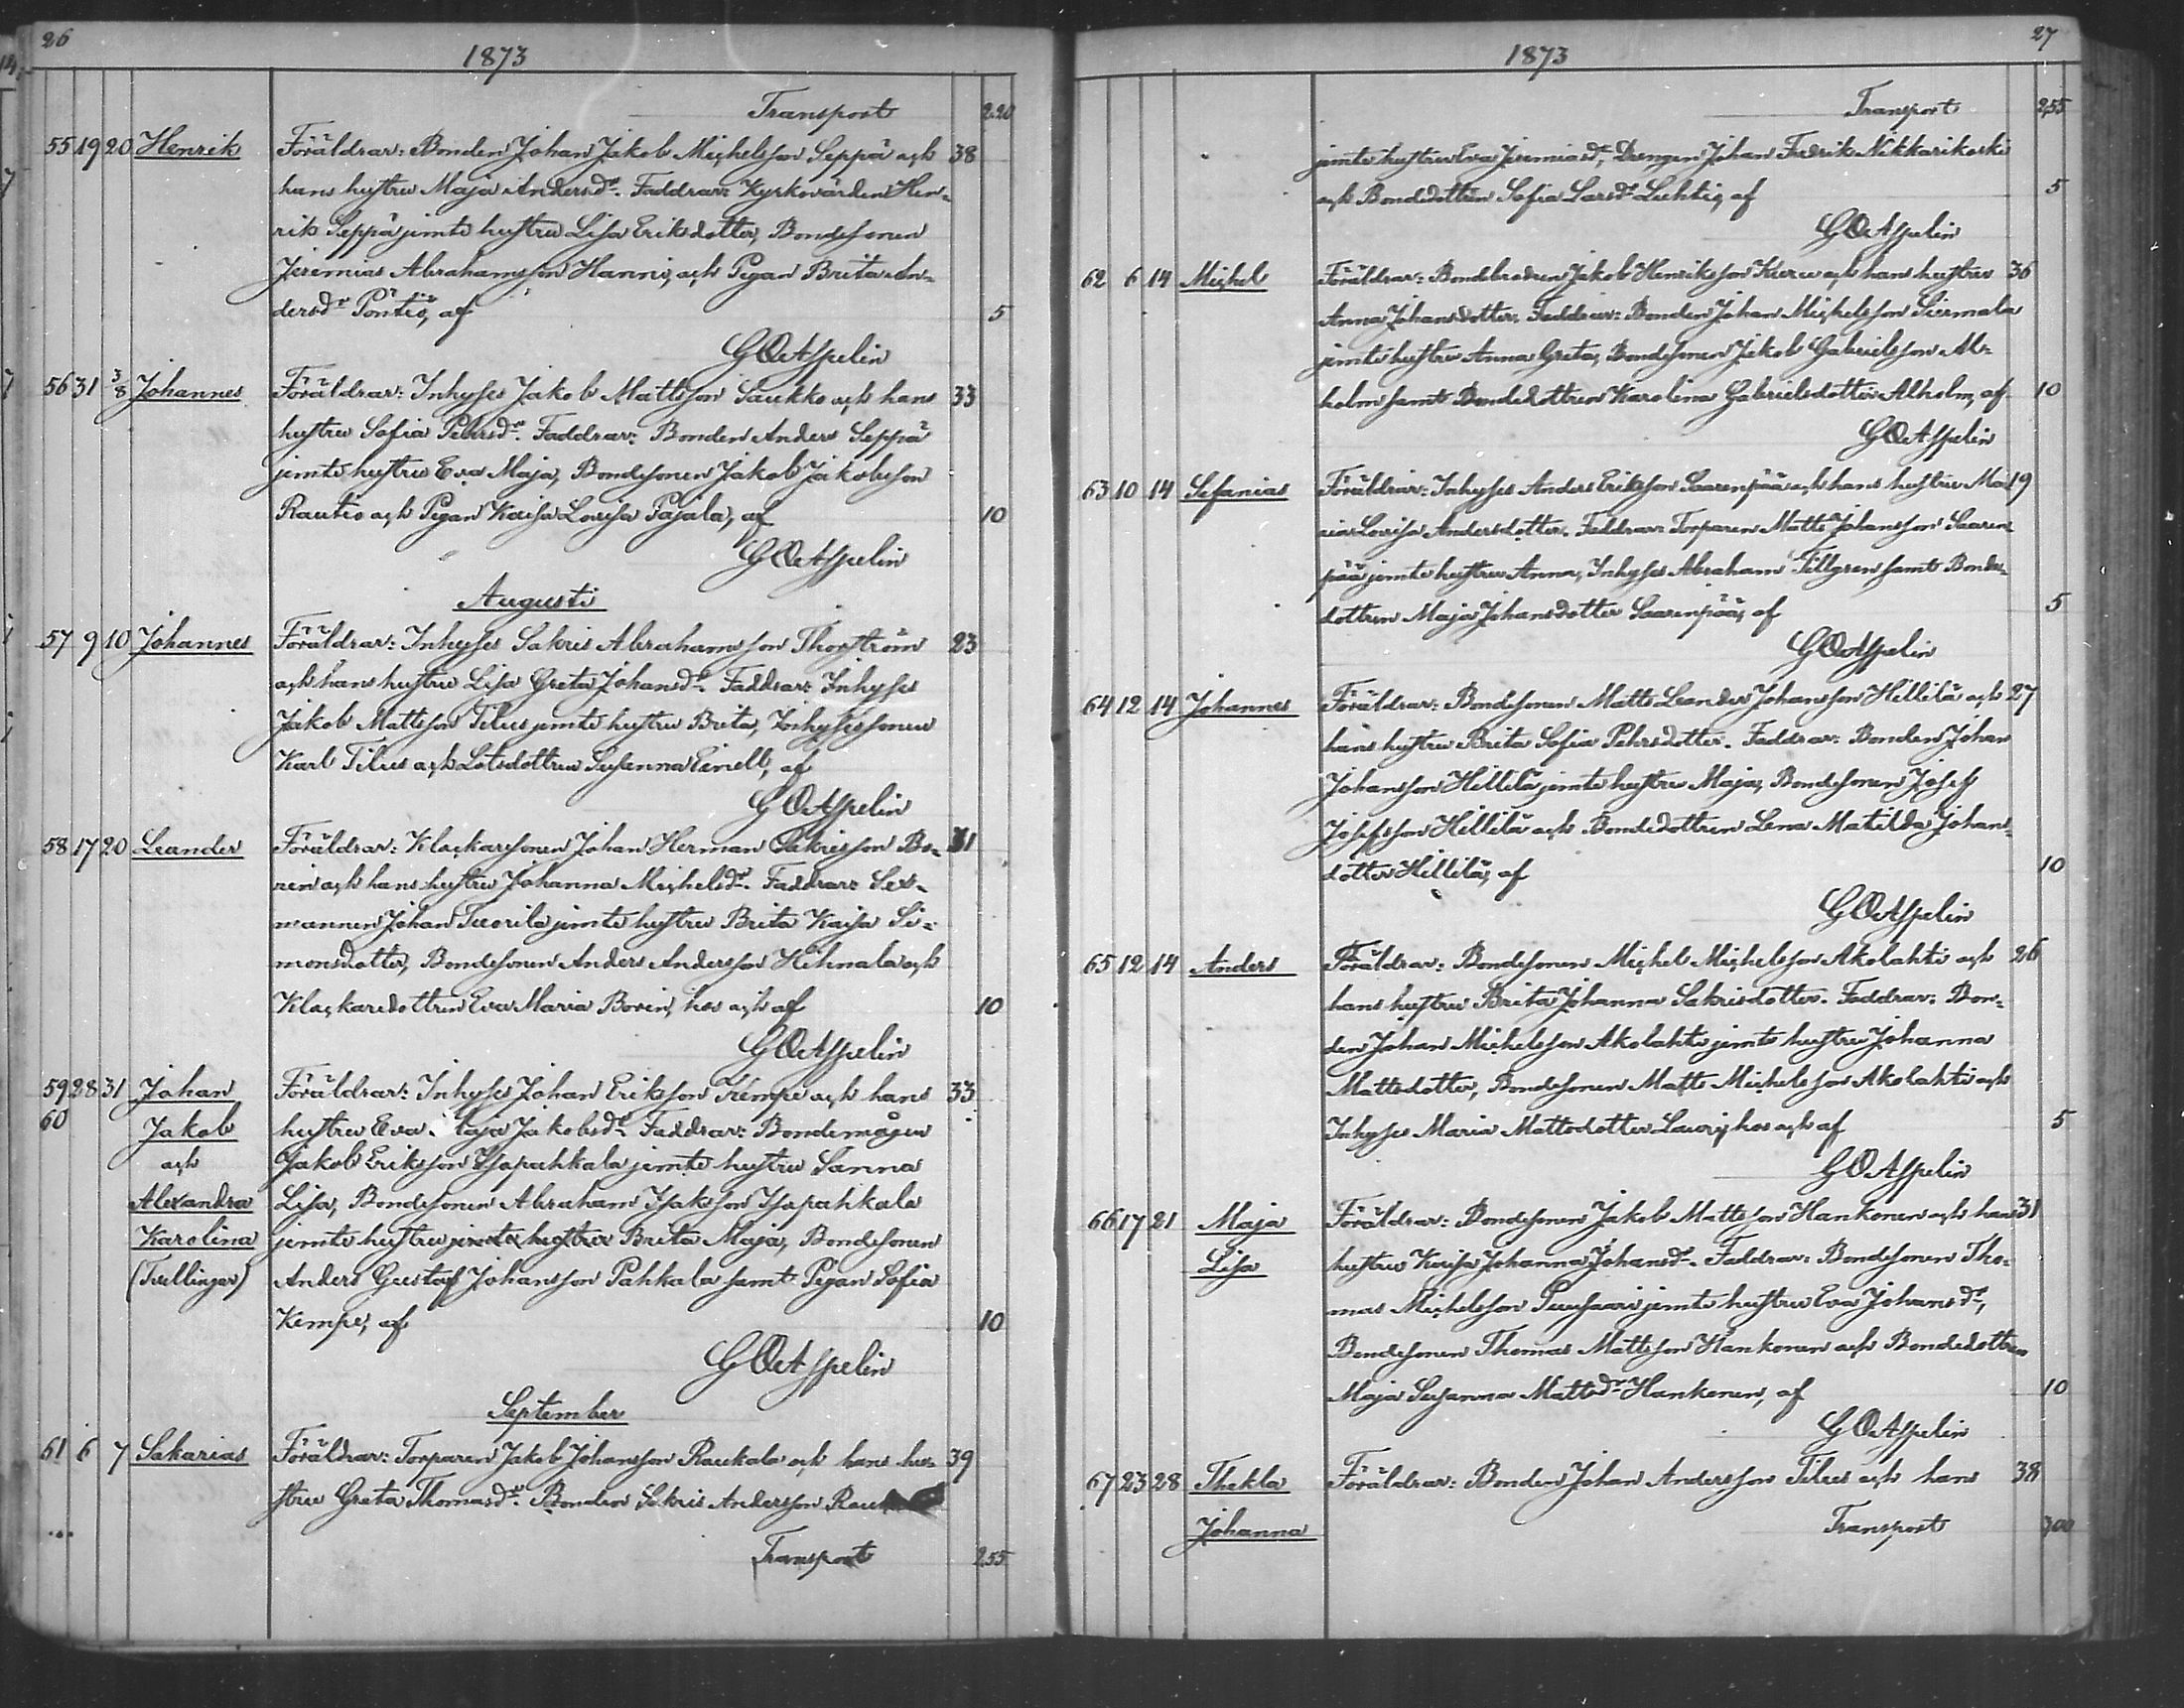 26
1873
Transport 2,20
55 19 20 Henrik Föräldrar: Bonden Johan Jakob Michelsson Seppä och 38
hans hustru Maja Andersdr. Faddrar: Kyrkovärden Hen-
rik Seppä jemte hustru Lisa Eriksdotter, Bondesonen
Jeremias Abrahamsson Hanni, och Pigan Brita An-
dersdr Pöntiö, af 5
G O Aspelin
56 31 3/8 Johannes Föräldrar: Inhyses Jakob Mattsson Saukko och hans 33
hustru Sofia Pehrsdr. Faddrar: Bonden Anders Seppä
jemte hustru Eva Maja, Bondesonen Jakob Jakobsson
Rautio och Pigan Kaisa Lovisa Pajala, af 10
G O Aspelin
Augusti
57 9 10 Johannes Föräldrar: Inhyses Sakris Abrahamsson Thorström 23
och hans hustru Lisa Greta Johansdr. Faddrar: Inhyses
Jakob Mattsson Tilus jemte hustru Brita, Inhysessonen
Karl Tilus och Lotsdottren Susanna Einell, af
G O Aspelin
58 17 20 Leander Föräldrar: Klockarsonen Johan Herman Sakrisson Bo- 31
rin och hans hustru Johanna Michelsdr. Faddrar: Sex-
mannen Johan Tuorila jemte hustru Brita Kaisa Si-
monsdotter, Bondesonen Anders Andersson Hihnala och
Klockaredottren Eva Maria Borin, hos och af 10
G O Aspelin
59 28 31 Johan Föräldrar: Inhyses Johan Eriksson Kempe och hans 33
60 Jakob hustru Eva Maja Jakobsdr. Faddrar: Bondemågen
och Jakob Eriksson Isopahkala jemte hustru Sanna
Alexandra Lisa, Bondesonen Abraham Isaksson Isopahkala
Karolina jemte hustru jemte hustru Brita Maja, Bondesonen
(Tvillingar) Anders Gustaf Johansson Pahkala samt Pigan Sofia
Kempe, af 10
G O Aspelin
September
61 6 7 Sakarias Föräldrar: Torparen Jakob Johansson Raukala och hans hu- 39
stru Greta Thomasdr. Bonden Sakris Andersson
Transport 2,55
27
1873
Transport 2,55
jemte hustru Eva Jeremiasdr, Drengen Johan Fredrik Nikkarikoski
och Bondedottren Sofia Larsdr Luhtio, af 5
G O Aspelin
62 6 14 Michel Föräldrar: Bondebrodren Jakob Henriksson Kuru och hans hustru 36
Anna Johansdotter. Faddrar: Bonden Johan Michelsson Siermala
jemte hustru Anna Greta, Bondesonen Jakob Gabrielsson Al-
holm samt Bondedottren Karolina Gabrielsdotter Alholm, af 10
G O Aspelin
63 10 14 Sefanias Föräldrar: Inhyses Anders Eriksson Saarenpää och hans hustru Ma- 19
ria Lovisa Andersdotter. Faddrar: Torparen Matts Johansson Saaren-
pää jemte hustru Anna, Inhyses Abraham Tillgren samt Bonde-
dottren Maja Johansdotter Saarenpää, af 5
G O Aspelin
64 12 14 Johannes Föräldrar: Bondesonen Matts Leander Johansson Hillilä och 27
hans hustru Brita Sofia Pehrsdotter. Faddrar: Bonden Johan
Johansson Hillilä jemte hustru Maja, Bondesonen Josef
Josefsson Hillilä och Bondedottren Lena Matilda Johans-
dotter Hillilä, af 10
G O Aspelin
65 12 14 Anders Föräldrar: Bondesonen Michel Michelsson Akolahti och 26
hans hustru Brita Johanna Sakrisdotter. Faddrar: Bon-
den Johan Michelsson Akolahti jemte hustru Johanna
Mattsdotter, Bondesonen Matts Michelsson Akolahti och
Inhyses Maria Mattsdotter Lauri, hos och af 5
G O Aspelin
66 17 21 Maja Föräldrar: Bondesonen Jakob Mattsson Hankonen och hans 31
Lisa hustru Kaisa Johanna Johansdr. Faddrar: Bondesonen Tho-
mas Michelsson Puusaari jemte hustru Eva Johansdr,
Bondesonen Thomas Mattsson Hankonen och Bondedottren
Maja Susanna Mattsdr Hankonen, af 10
G O Aspelin
67 23 28 Thekla Föräldrar: Bonden Johan Andersson Tilus och hans 38
Johanna Transport 3,00